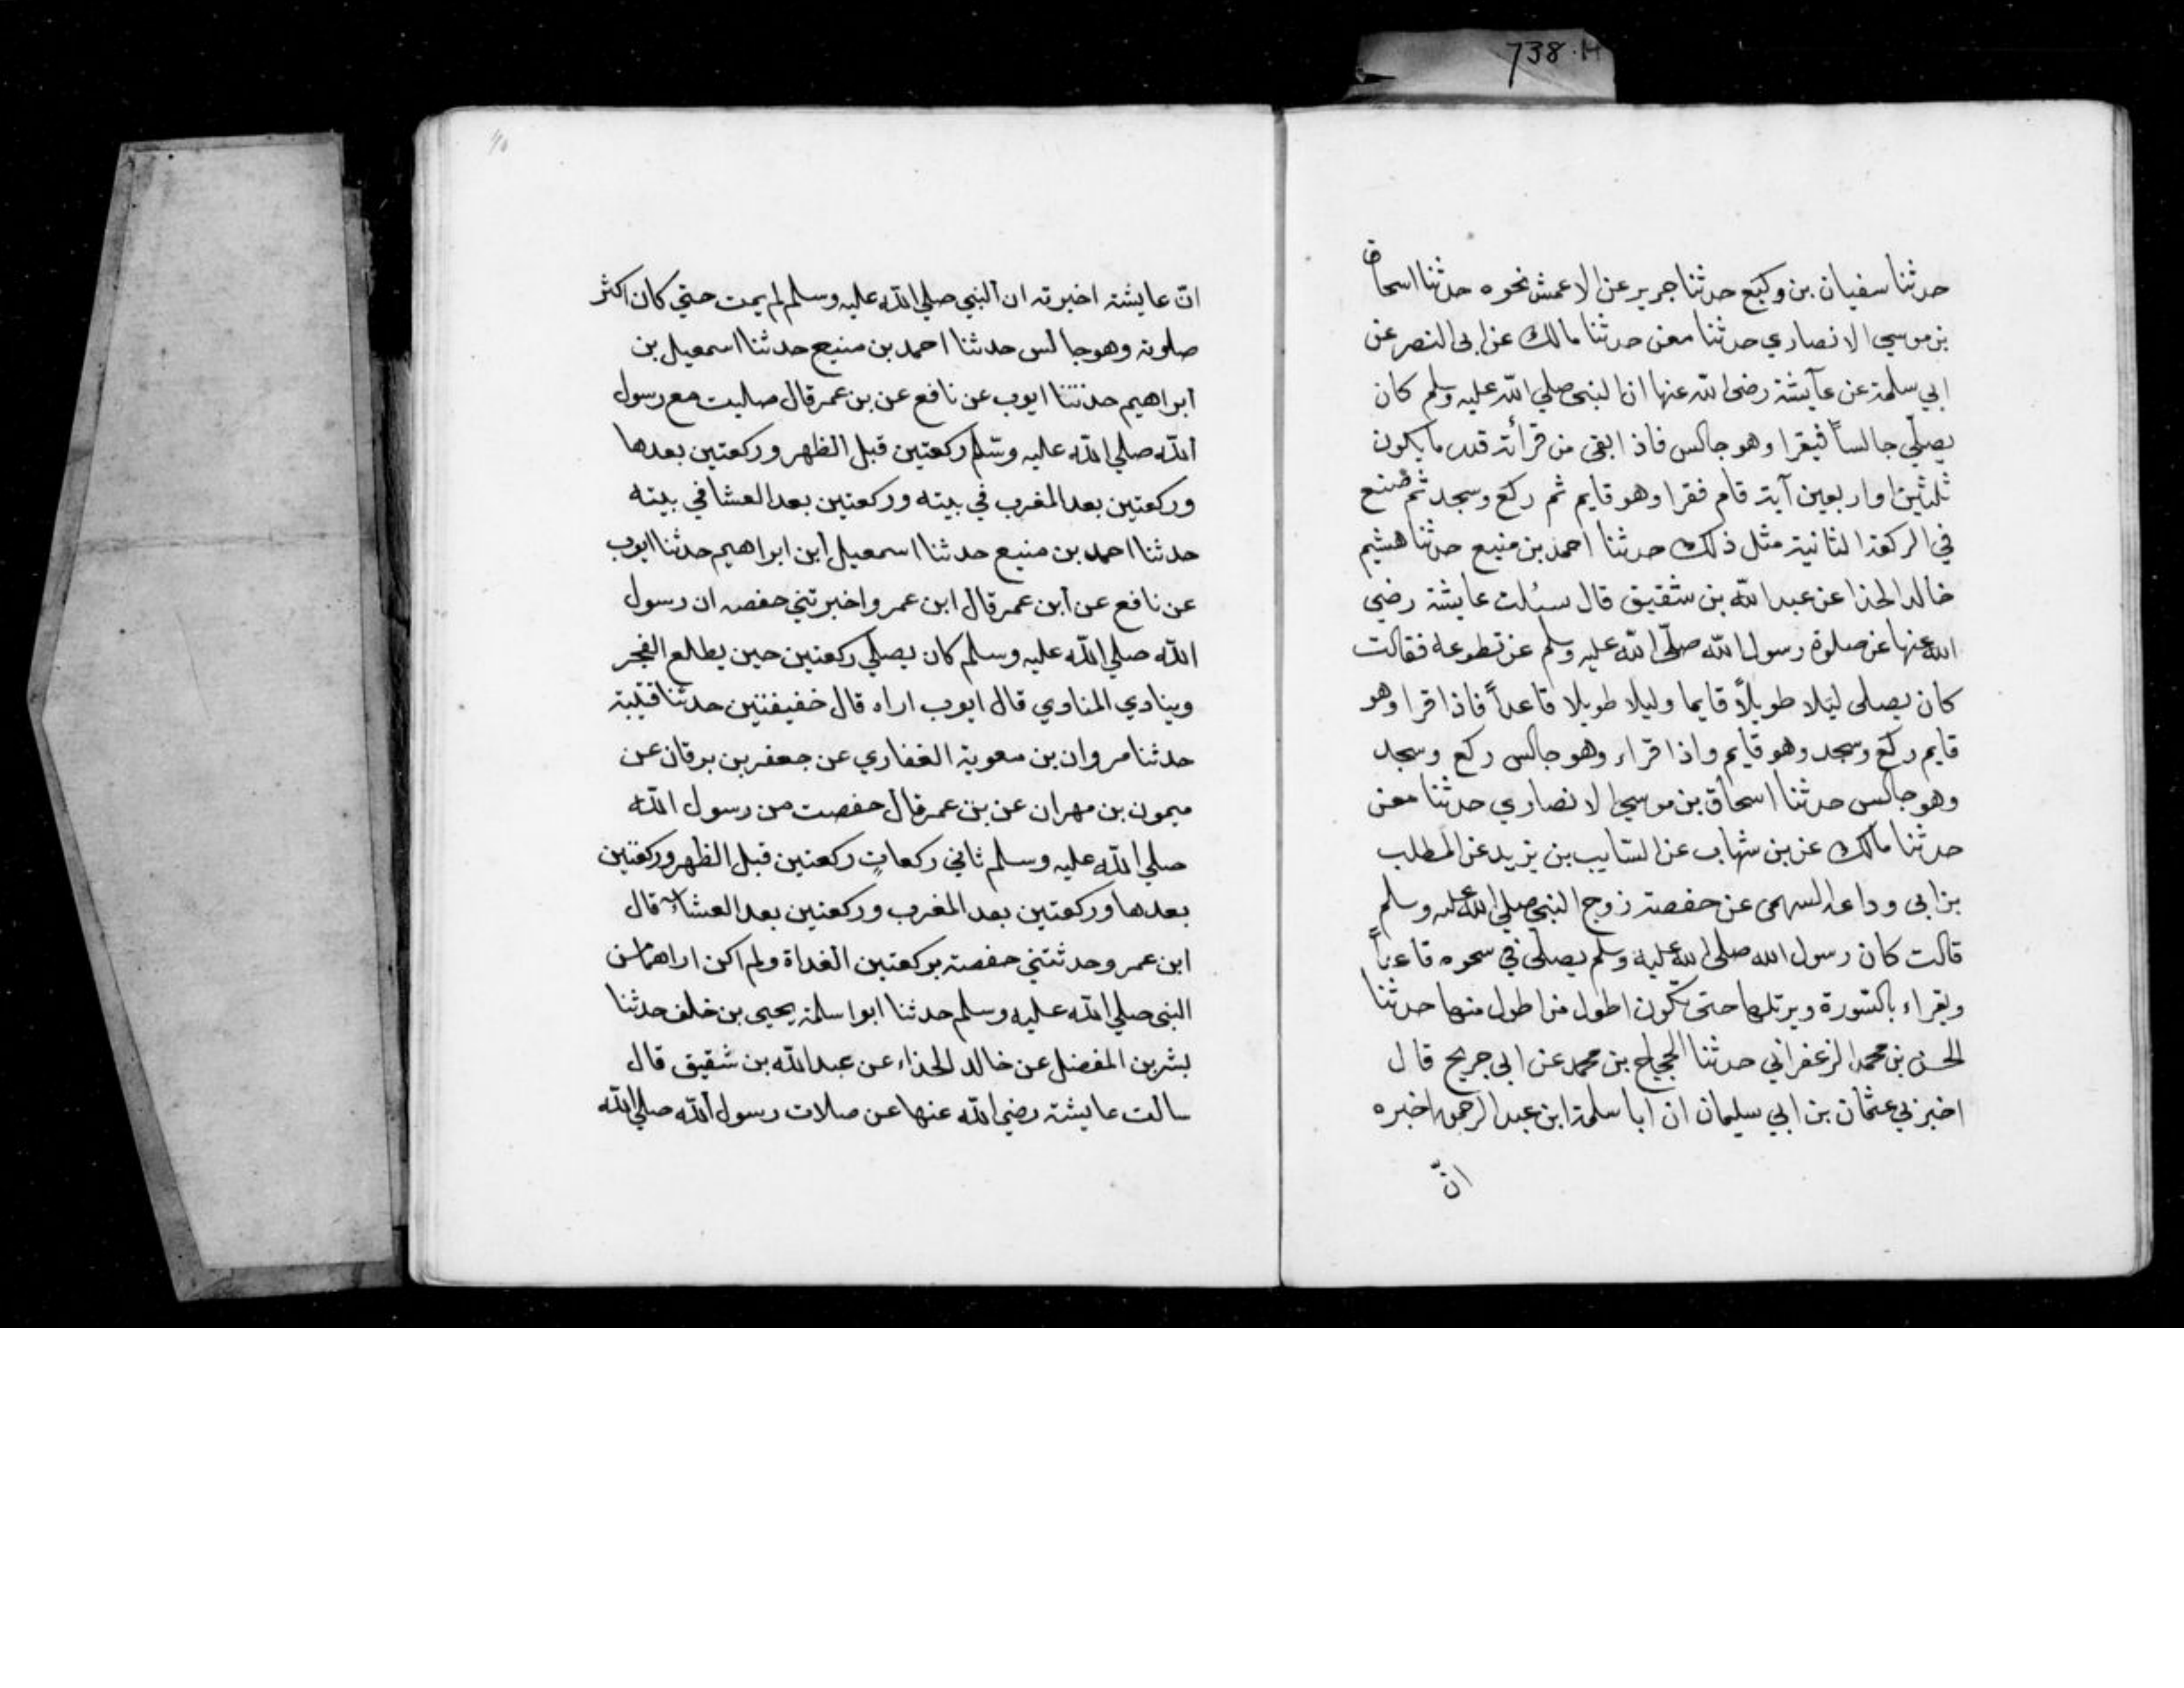 738.H
حدثنا سفيان بن وكيع حدثنا جرير عن الاعمش نحوه حدثنا اسحاق
بن موسي الانصاري حدثنا معن حدثنا مالك عن ابي النصر عن
ابي سلمة عن عآيشة رضي الله عنها ان النبي صلي الله عليه وسلم كان
يصلّي جالساً فيقرا وهو جالس فاذا بقي من قرأته قدر ما يكون
ثلثين او اربعين آية قام فقرا وهو قايم ثم ركع وسجد ثم صنع
في الركعة الثانية مثل ذلك حدثنا احمد بن منيع حدثنا هشيم
خالد الحذا عن عبد الله بن شقيق قال سئلت عايشة رضي
الله عنها عن صلوة رسول الله صلّي الله عليه وسلم عن تطوعه فقالت
كان يصلي ليلا طويلاً قايما وليلا طويلا قاعداً فاذا قرا وهو
قايم ركع وسجد وهو قايم واذا قراء وهو جالس ركع وسجد
وهو جالس حدثنا اسحاق بن موسي الانصاري حدثنا معن
حدثنا مالك عن بن شهاب عن السايب بن يزيد عن المطلب
بن ابي وداعه السهمي عن حفصة زوج النبي صلي الله عليه وسلم
قالت كان رسول الله صلي الله عليه وسلم يصلي في سحوه قاعداً
ويقراء بالسّورة ويرتلها حتي تكون اطول من اطول منها حدثنا
الحسن بن محمد الزعفراني حدثنا الحجاج بن محمد عن ابي جريح قال
اخبرني عثمان بن ابي سليمان ان ابا سلمة ابن عبد الرحمن اخبره
انّ
انّ عايشة اخبرته ان النبي صلي الله عليه وسلم لم يمت حتي كان اكثر
صلوته وهو جالس حدثنا احمد بن منيع حدثنا اسمعيل بن
ابراهيم حدثنا ايوب عن نافع عن بن عمر قال صليت مع رسول
الله صلي الله عليه وسّلم ركعتين قبل الظهر وركعتين بعدها
وركعتين بعد المغرب في بيته وركعتين بعد العشا في بيته
حدثنا احمد بن منيع حدثنا اسمعيل ابن ابراهيم حدثنا ايوب
عن نافع عن ابن عمر قال ابن عمر واخبرتني حفصه ان رسول
الله صلي الله عليه وسلم كان يصلي ركعتين حين يطلع الفجر
وينادي المناوي قال ايوب اراه قال خفيفتين حدثنا قتيبة
حدثنا مروان بن معوية الغفاري عن جعفر بن برقان عن
ميمون بن مهران عن بن عمر قال حفصت من رسول الله
صلي الله عليه وسلم ثاني ركعاتٍ ركعتين قبل الظهر وركعتين
بعدها وركعتين بعد المغرب وركعتين بعد العشاء قال
ابن عمر وحدثتني حفصة بركعتين الغداة ولم اكن اراهما من
النبي صلي الله عليه وسلم حدثنا ابوا سلمة يحيي بن خلف حدثنا
بشر بن المفضل عن خالد الحذاء عن عبد الله بن شقيق قال
سالت عايشة رضي الله عنها عن صلات رسول الله صلي الله